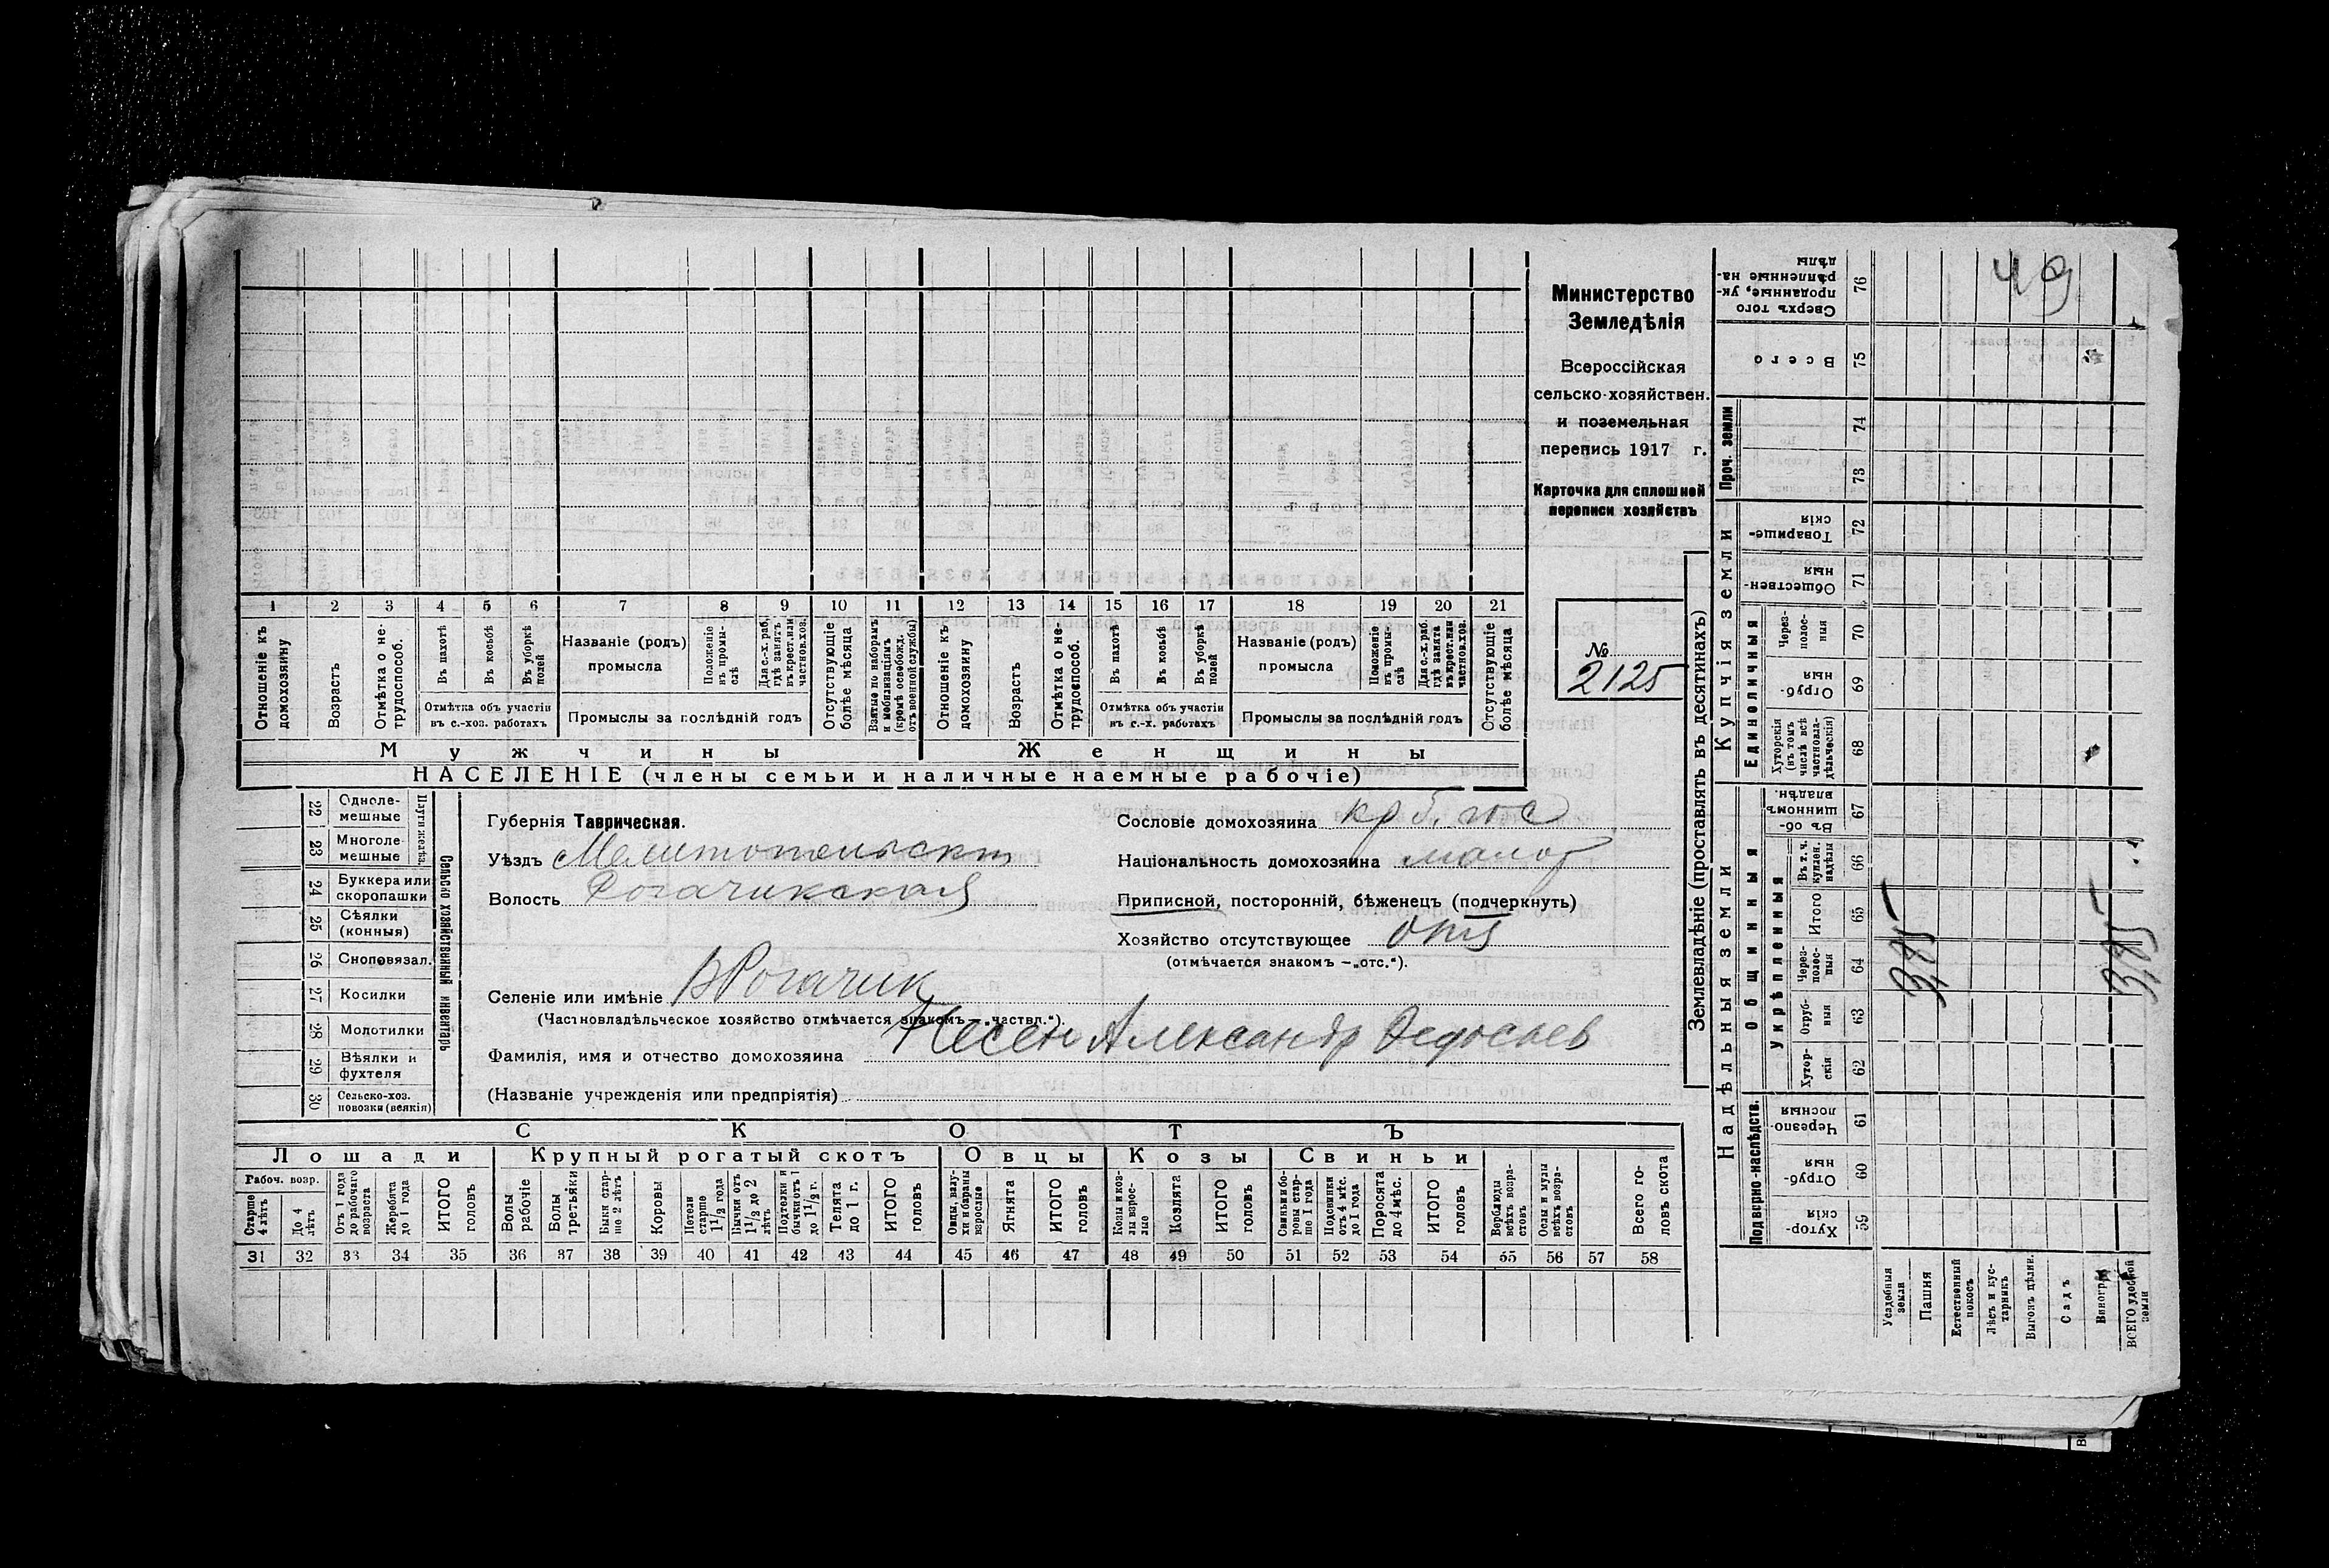 49
Министерство
Земледѣлія
Всероссійская
сельско-хозяйствен.
и поземельная
перепись 1917 г.
Карточка для сплошной
переписи хозяйствъ
№
2125
1 2 3 4 5 6 7 8 9 10 11 12 13 14 15 16 17 18 19 20 21
Отношеніе къ домохозяину
Возрастъ
Отмѣтка о не-трудоспособ.
Въ пахотѣ
Въ косьбѣ
Въ уборкѣ полей
Отмѣтка объ участіи въ с.-хоз. работахъ
Названіе (родъ) промысла
Положеніе въ промы-слѣ
Для с.-х. раб. гдѣ занятъ въ крест. или частнов. хоз.
Промыслы за послѣдній годъ
Отсутствующіе болѣе мѣсяца
Взятые по наборамъ и мобилизаціямъ (кромѣ освобожд. отъ военной службы)
Отношеніе къ домохозяину
Возрастъ
Отмѣтка о не-трудоспособ.
Въ пахотѣ
Въ косьбѣ
Въ уборкѣ полей
Отмѣтка объ участіи въ с.-х. работахъ
Названіе (родъ) промысла
Положеніе въ промы-слѣ
Для с.-х. раб. гдѣ занята въ крест. или частнов. хоз.
Промыслы за послѣдній годъ
Отсутствующіе болѣе мѣсяца
Мужчины Женщины
НАСЕЛЕНІЕ (члены семьи и наличные наемные рабочіе)
22 Одноле-мешные
23 Многоле-мешные
Плуги желѣз.
24 Буккера или скоропашки
25 Сѣялки (конныя)
26 Сноповязал.
27 Косилки
28 Молотилки
29 Вѣялки и фухтеля
30 Сельско-хоз. повозки (всякія)
Сельско хозяйственный инвентарь
Губернія Таврическая.
Уѣздъ Мелитопольскій
Волость Рогачикская
Селеніе или имѣніе В Рогачик
(Частновладѣльческое хозяйство отмѣчается знакомъ — „частвл.“).
Фамилія, имя и отчество домохозяина Песен Александр Федосиев
(Названіе учрежденія или предпріятія)
Сословіе домохозяина кр б. гос
Національность домохозяина малор
Приписной, посторонній, бѣженецъ (подчеркнуть)
Хозяйство отсутствующее отс
(отмѣчается знакомъ —„отс.“).
СКОТЪ
Лошади Крупный рогатый скотъ Овцы Козы Свиньи
Рабоч. возр.
Старше 4 лѣтъ
До 4 лѣтъ
Отъ 1 года до рабочаго возраста
Жеребята до 1 года
ИТОГО головъ
Волы рабочіе
Волы третьяки
Быки стар-ше 2 лѣтъ
Коровы
Нетели старше 1 1/2 года
Бычки отъ 1 1/2 до 2 лѣтъ
Подтелки и бычки отъ 1 до 1 1/2 г.
Телята до 1 г.
ИТОГО головъ
Овцы, валу-хи и бараны взрослые
Ягнята
ИТОГО головъ
Козы и коз-лы взрос-лые
Козлята
ИТОГО головъ
Свиньи и бо-ровы стар-ше 1 года
Подсвинки отъ 4 мѣс. до 1 года
Поросята до 4 мѣс.
ИТОГО головъ
Верблюды всѣхъ возра-стовъ
Ослы и мулы всѣхъ возра-стовъ
Всего го-ловъ скота
31 32 33 34 35 36 37 38 39 40 41 42 43 44 45 46 47 48 49 50 51 52 53 54 55 56 57 58
Землевладѣніе (проставлять въ десятинахъ)
Надѣльныя земли
Купчія земли
Проч. земли
Подворно-наслѣдств.
Общинныя
Укрѣпленныя
Единоличныя
76 Сверхъ того проданные, ук-рѣпленные на-дѣлы
75 Всего
74
73
72 Товарище-скія
71 Обществен-ныя
70 Через-полос-ныя
69 Отруб-ныя
68 Хуторскія (въ томъ числѣ всѣ частновла-дѣльческія)
67 Въ об-щинномъ владѣн.
66 Въ т. ч. куплен. надѣлы
65 Итого
64 Через-полос-ныя
63 Отруб-ныя
62 Хутор-скія
61 Черезпо-лосныя
60 Отруб-ныя
59 Хутор-скія
Усадебныя земли
Пашня
Естественный покосъ
Лѣсъ и кус-тарникъ
Выгонъ цѣлин.
Садъ
Виногр.
ВСЕГО удобной земли